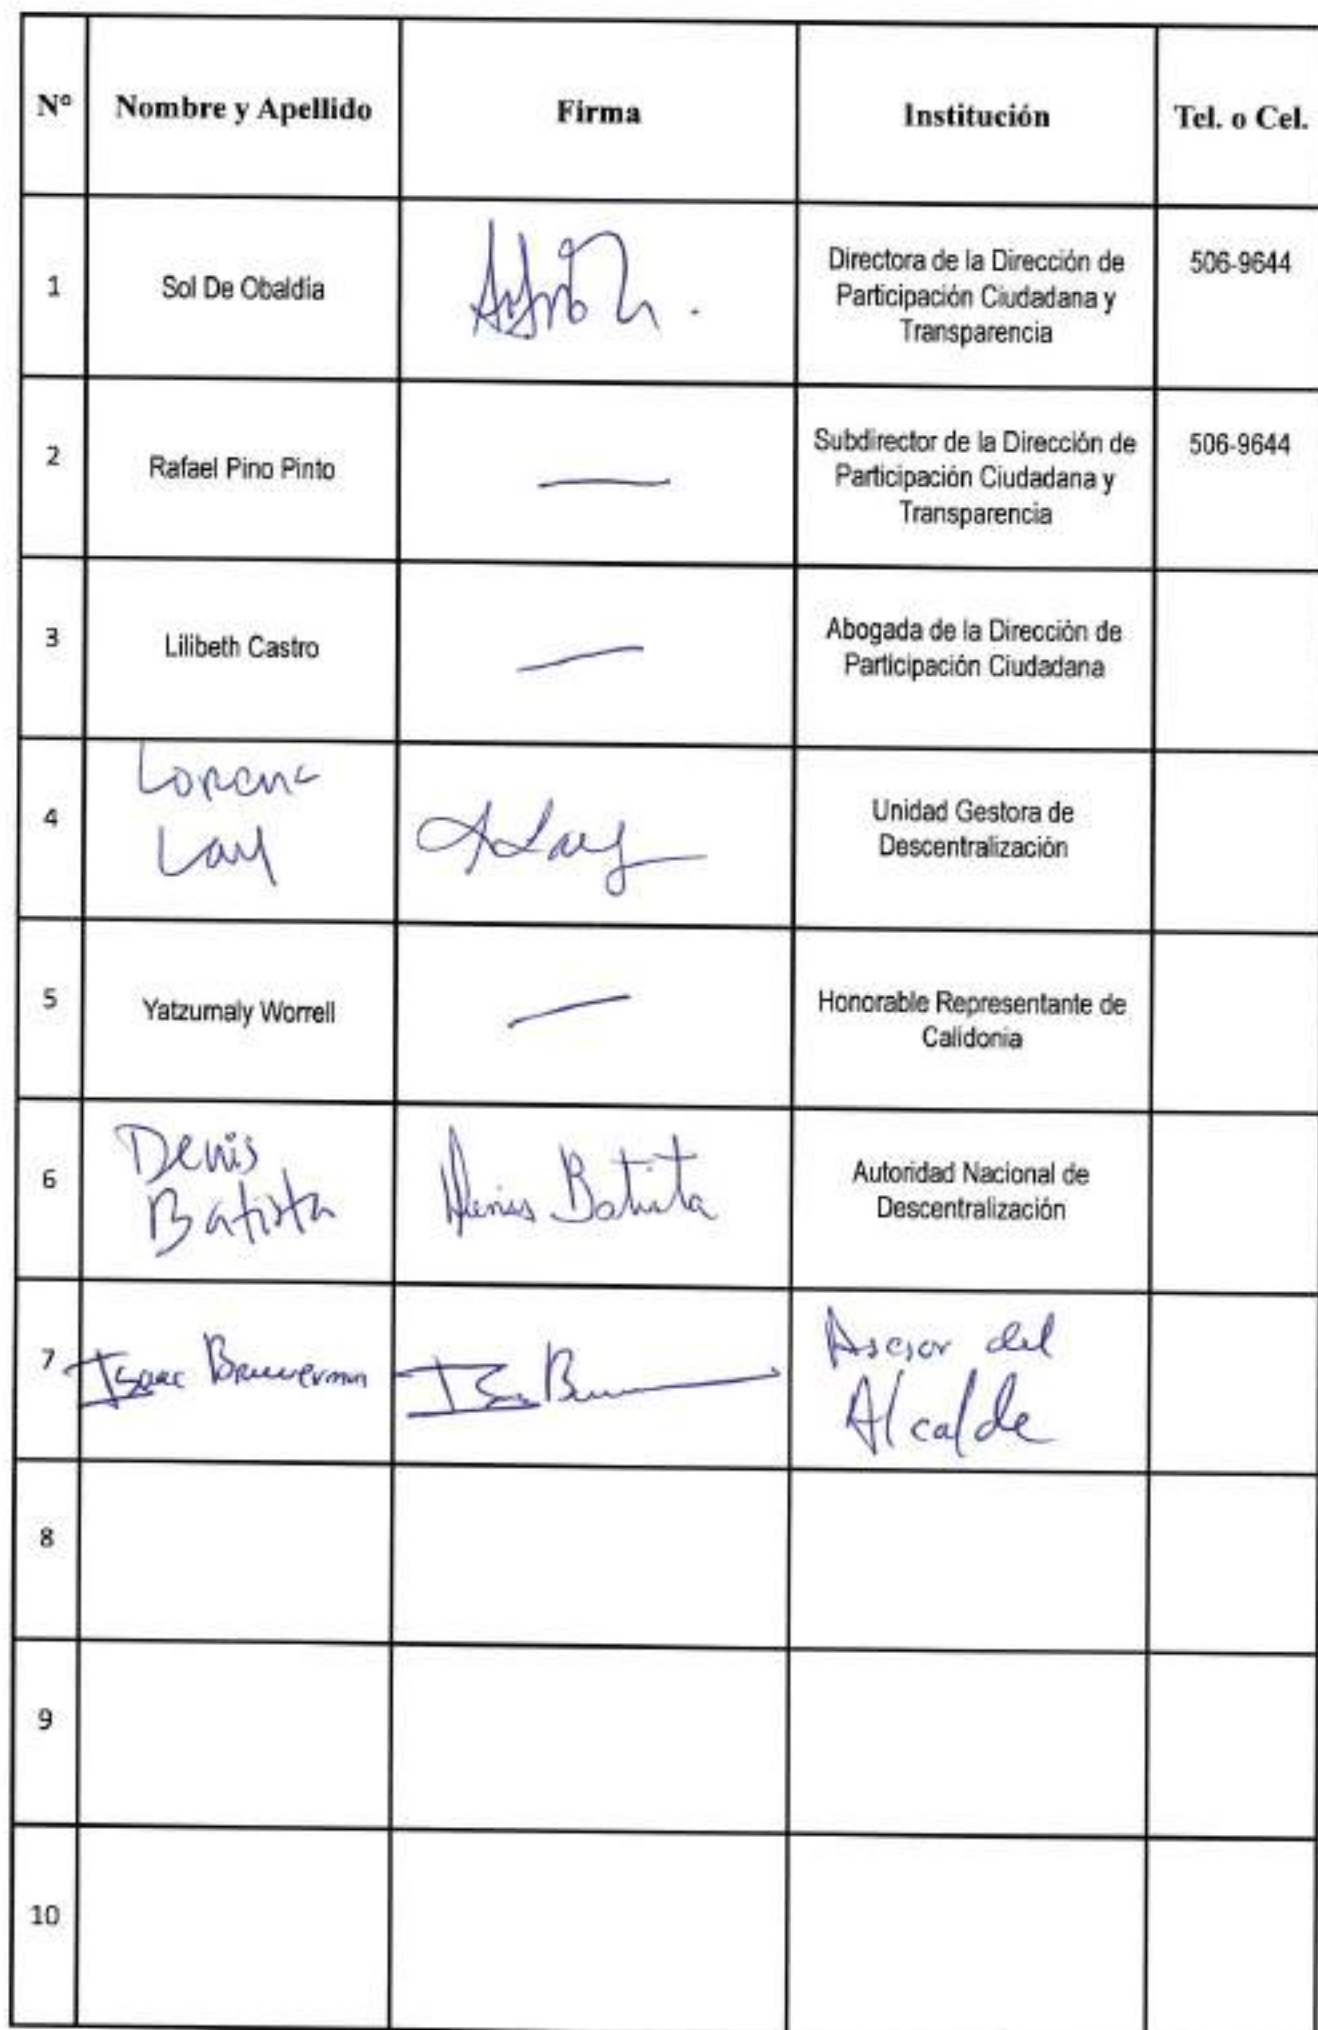 N° Nombre y Apellido Firma Institución Tel. o Cel.
1 Sol De Obaldía Directora de la Dirección de 506-9644
Participación Ciudadana y
Transparencia
2 Rafael Pino Pinto Subdirector de la Dirección de 506-9644
Participación Ciudadana y
Transparencia
3 Lilibeth Castro Abogada de la Dirección de
Participación Ciudadana
4 Lorena Unidad Gestora de
Lay Descentralización
5 Yatzumaly Worrell Honorable Representante de
Calidonia
6 Denis Denis Batista Autoridad Nacional de
Batista Descentralización
7 Isaac Asesor del
Alcalde
8
9
10